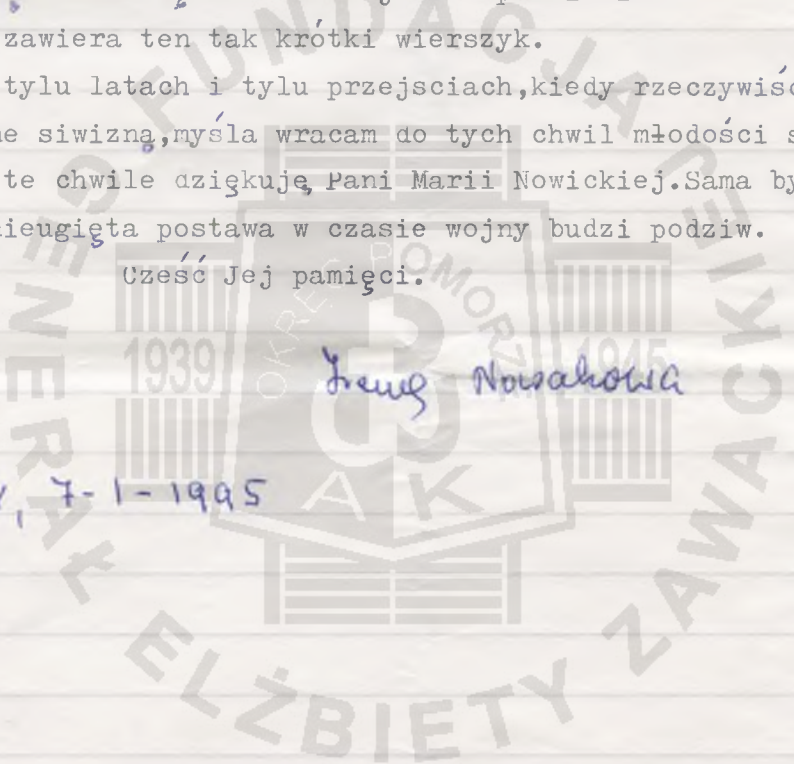 zawiera ten tak krótki wierszyk.
tylu latach i tylu przejściach,kiedy rzeczywiśc
e siwizną,myśla wracam do tych chwil młodości s
te chwile aziękuję Pani Marii Nowickiej.Sama by
ieugięta postawa w czasie wojny budzi podziw.
Cześć Jej pamięci.
Nowakowa
7-1-1995
FUNDACJA GENERAŁ ELŻBIETY ZAWACKIEJ
OKRĘG POMORZE
1939 1945
AK